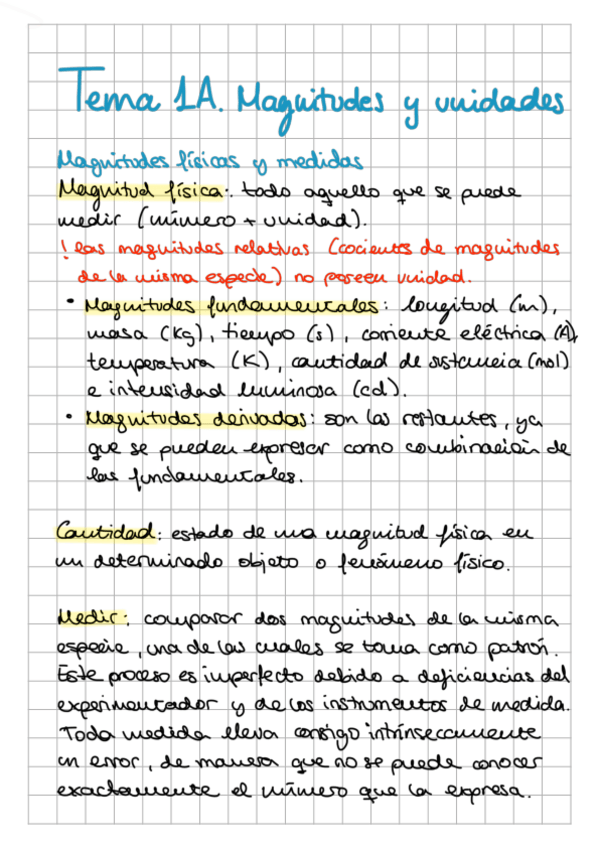 Tema 1A. Magnitudes y unidades
Magnitudes físicas y medidas
Magnitud física: todo aquello que se puede
medir (número + unidad).
! Las magnitudes relativas (cocientes de magnitudes
de la misma especie) no poseen unidad.
• Magnitudes fundamentales: longitud (m),
masa (kg), tiempo (s), corriente eléctrica (A),
temperatura (K), cantidad de sustancia (mol)
e intensidad luminosa (cd).
• Magnitudes derivadas: son las restantes, ya
que se pueden expresar como combinación de
las fundamentales.
Cantidad: estado de una magnitud física en
un determinado objeto o fenómeno físico.
Medir: comparar dos magnitudes de la misma
especie, una de las cuales se toma como patrón.
Este proceso es imperfecto debido a deficiencias del
experimentador y de los instrumentos de medida.
Toda medida lleva consigo intrínsecamente
un error, de manera que no se puede conocer
exactamente el número que la expresa.